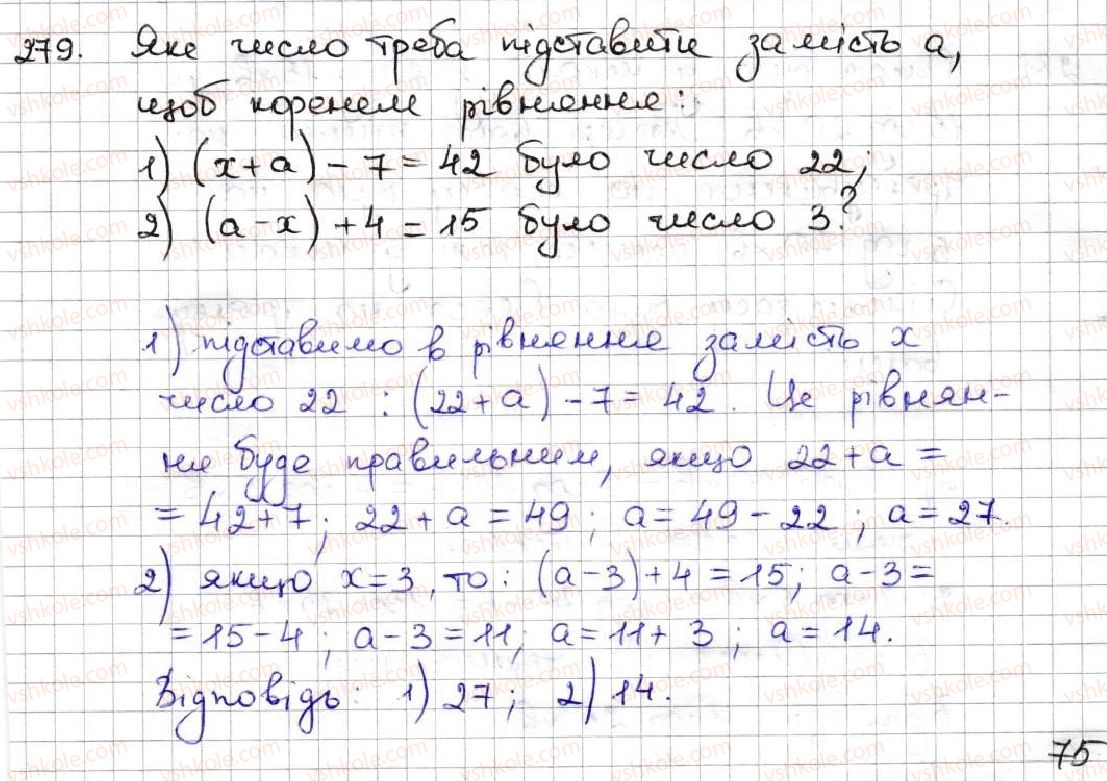 279. Яке число треба підставити замість а,
щоб коренем рівняння:
1) (x+a)-7=42 було число 22;
2) (a-x)+4=15 було число 3?
1) підставимо в рівняння замість x
число 22 : (22+a)-7=42. Це рівнян-
ня буде правильним, якщо 22+a=
=42+7; 22+a=49; a=49-22; a=27.
2) якщо x=3, то: (a-3)+4=15; a-3=
=15-4; a-3=11; a=11+3; a=14.
Відповідь: 1) 27; 2) 14.
75